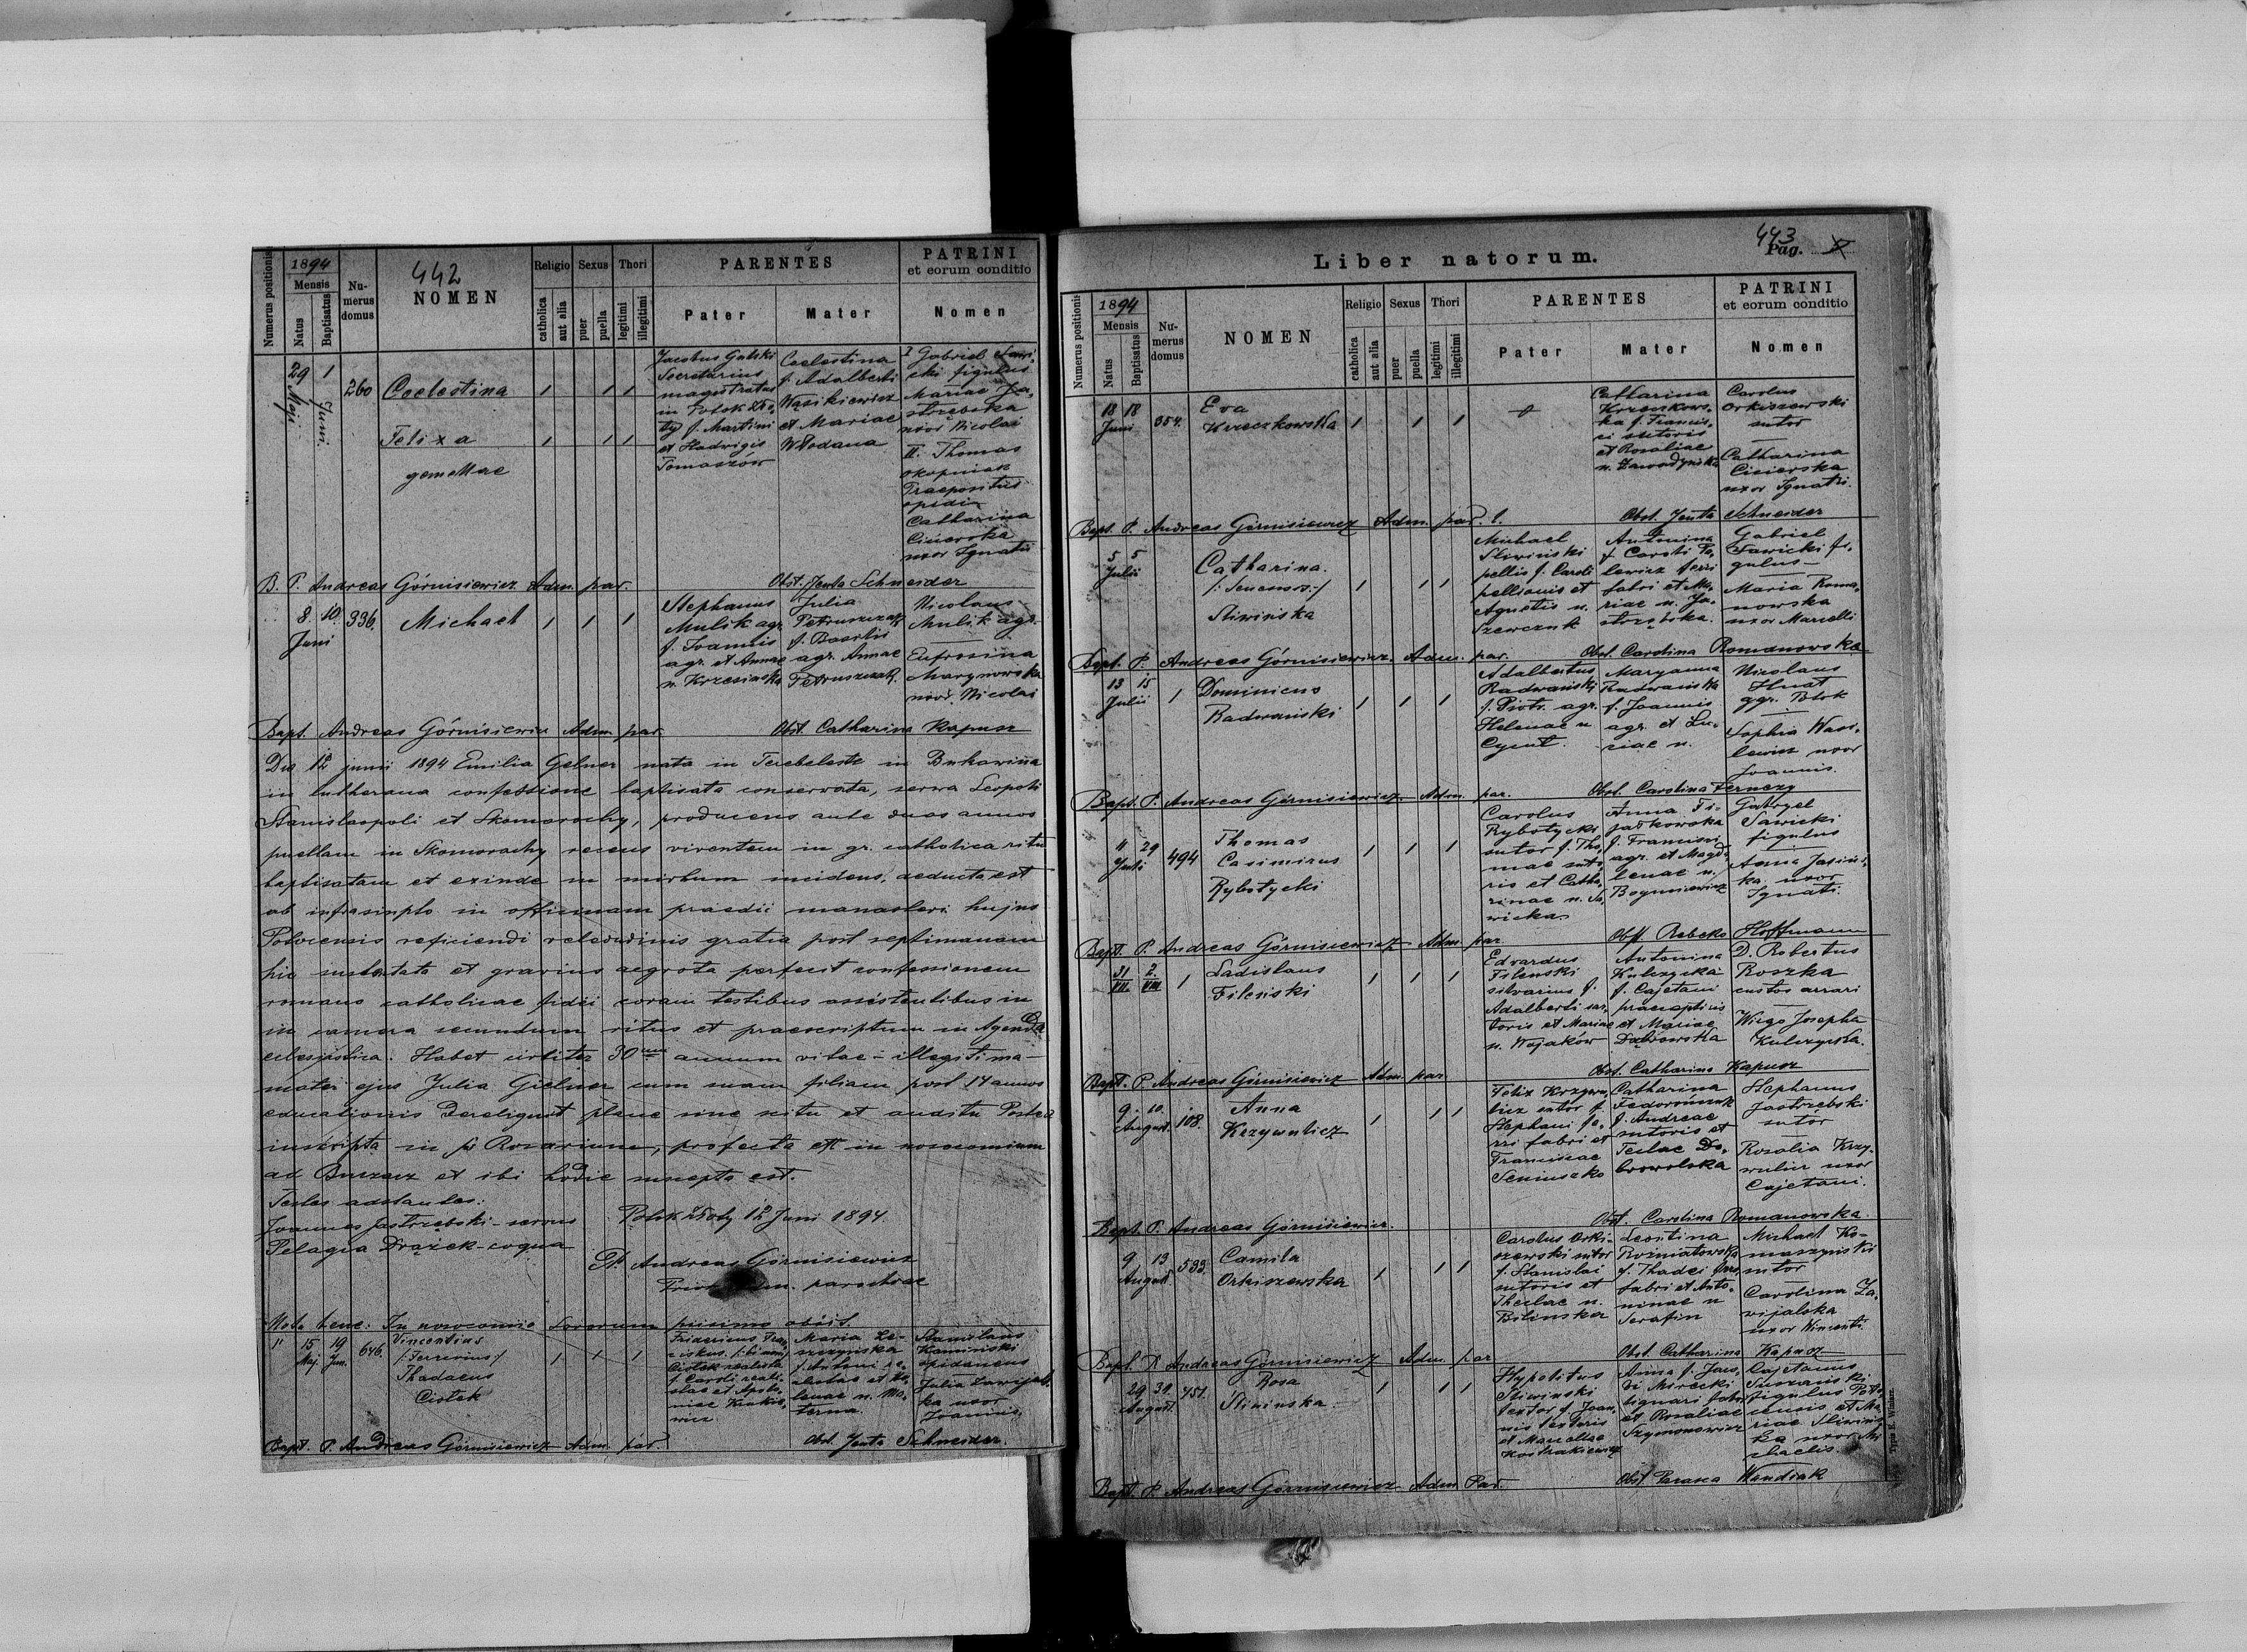 442
Numerus positionis
1894
Mensis
Natus
Baptisatus
Nu-
merus
domus
NOMEN
Religio
catholica
aut alia
Sexus
puer
puella
Thori
legitimi
illegitimi
PARENTES
Pater
Mater
PATRINI
et eorum conditio
Nomen
29 Maji
1 Junii
260
Coelestina
Felixa
gemellae
Secretarius
magistratus
in Potok Zło-
ty f. Martini
et Hadvigis
Tomaszów
Coelestina
f. Adalberti
Wąsikiewicz
et Mariae
Włodana
I Gabriel Sawi-
cki figulus
Mariae Ja-
strzębska
uxor Nicolai
II. Thomas
Okopniak
Praepositus
opidi
Catharina
Cisierska
uxor Ignatii
B. P. Andreas Górnisiewicz Adm. par.
Obst. Jenta Schneider
8. 10.
Juni
336.
Michael
Stephanus
Mulik agr.
f. Joannis
agr. et Annae
n. Krzesinska
Julia
Petruszczak
f. Basilii
agr. Annae
Petruszczak.
Nicolaus
Mulik agr.
Eufrosina
Marynowska
uxor Nicolai
Bapt. Andreas Górnisiewicz Adm. par.
Obst. Catharina Kapusz
Die 12 junii 1894 Emilia Gelner nata in Terebleste in Bukowina
in lutherana confessione baptisata conservata, serva Leopoli
Stanislaopoli et Skomorochy, producens ante duos annos
puellam in Skomorochy recens viventem in gr. catholica ritu
baptisatam et exinde in morbum incidens, deducta est
ab infrascripto in officinam praedii monasterii hujus
Potocensis reficiendi valetudinis gratia post septimanam
hic sustentata et gravius aegrota perfecit confessionem
romano catholicae fidei coram testibus assistentibus in
in camera secundum ritus et praescriptum in Agenda
eclesjastica. Habet circiter 30 annum vitae - illegitima -
mater ejus Julia Gielner cum suam filiam post 14 annos
educationis dereliquit plane sine scitu et auditu Postea
inscripta in Rosarium, profecta est in nosocomium
ad Buczacz et ibi hodie suscepta est.
Testes adstantes:
Joannes Jastrzębski - servus
Pelagia Drążek - coqua
Potok Złoty 12 Juni 1894.
P. Andreas Górnisiewicz
parochiae
Nota bene: In nosocomio Sororum piissime obiit.
15 Maj.
19 Jun.
646.
Vincentius
/: Ferrerius :/
Thadaeus
Ciołek
Fridericus
Ciołek realista
f. Caroli reali-
stae et Apolo-
niae
Maria Le-
szczynska
f. Antoni re-
alistae et He-
lenae n. Ma-
terna.
Stanislaus
Kaminski
opidaneus
Julia Zawijal-
ka uxor
Joannis.
Bapt. P. Andreas Górnisiewicz Adm. par.
Obst. Jenta Schneider.
Liber natorum.
443
Pag.
Numerus positionis
1894
Mensis
Natus
Baptisatus
Nu-
merus
domus
NOMEN
Religio
catholica
aut alia
Sexus
puer
puella
Thori
legitimi
illegitimi
PARENTES
Pater
Mater
PATRINI
et eorum conditio
Nomen
18 18
Juni
354.
Eva
Krzeczkowska
Catharina
Krzeczkows-
ka f. Francis-
ci sutoris
et Rosaliae
n. Zawadyńska
Carolus
Orkiszewski
sutor
Catharina
Cisierska
uxor Ignatii.
Bapt. P. Andreas Górnisiewicz Adm. par.
Obst. Jenta Schneider
5 5
Julii
Catharina
Sliwińska
Michael
Sliwiński
pellio f. Caroli
pellionis et
Agnetis n.
Szewczuk
Antonina
f. Caroli Pa-
lewicz ferri
fabri et Ma-
riae n. Ja-
strzębska.
Gabriel
Sawicki fi-
gulus -
Maria Roma-
nowska
uxor Marcelli
Bapt. P. Andreas Górnisiewicz. Adm. par.
Obst. Carolina Romanowska
13 15
Julii
1
Dominicus
Radwański
Adalbertus
Radwański
f. Piotr. agr.
Helenae n
Cycut.
Maryanna
Radwańska
f. Joannis
agr. et Lu-
ciae n.
Nicolaus
Hnat
Sophia Wasi-
lewicz uxor
Joannis.
Bapt. P. Andreas Górnisiewicz Adm. par.
Obst. Carolina Ferneży
11 29
Juli
494
Thomas
Casimirus
Rybotycki
Carolus
Rybotycki
sutor f. Tho-
mae suto-
ris et Catha-
rinae n. Sa-
wicka.
Anna Fi-
jałkowska
f. Francisci
agr. et Magda-
lenae n.
Bogusiewicz
Gabryel
Sawicki
figulus
Anna Jasińs-
ka uxor
Ignati.
Bapt. P. Andreas Górnisiewicz Adm. par.
Obst Rebeka Hoffmann
31 2.
VII. VIII.
1
Ladislaus
Filenski
Edvardus
Filenski
silvarius f.
Adalberti sar-
toris et Mariae
n. Wojaków
Antonina
Kulczycka
f. Cajetani
praeceptoris
et Mariae
Dąbrowska
D. Robertus
Roszka
custos arrari
Wirgo Josepha
Kulczycka.
Bapt. P. Andreas Górnisiewicz Adm. par.
Obst. Catharina Kapusz
9. 10.
August.
108.
Anna
Krzywulicz
Felix Krzywu-
licz sutor f.
Stephani fe-
rri fabri et
Franciscae
Catharina
Fedorończuk
f. Andreae
sutoris et
Teclae Do-
browolska
Stephanus
Jastrzebski
sutor
Rosalia Krzy-
wulicz uxor
Cajetani.
Bapt. P. Andreas Górnisiewicz.
Obst. Carolina Romanowska.
9 13
August
533.
Camila
Orkiszewska
Carolus Orki-
szewski sutor
f. Stanislai
sutoris et
Theclae n.
Bilinska
Leontina
Rozmiatowska
f. Thadei ferri
fabri et Anto-
ninae n
Serafin
Michael Ko-
maszynski
sutor
Carolina Za-
wijalska
uxor Wincenti.
Bapt. P. Andreas Górnisiewicz Adm. par
Obst. Catharina Kapusz
29 31.
August.
451.
Rosa
Śliwinska.
Hypolitus
Sliwinski
textor f. Joan-
nis textoris
et Marcellae
Kostrakiewicz
Anna f. Jaco-
bi Mirecki
lignari fabri
et Rosaliae
Szymonowicz
Cajetanus
Suszanski
figulus Poto-
censis et Ma-
riae Sliwins-
ka uxor Mi-
chaelis.
Bapt. P. Andreas Górnisiewicz Adm. Par.
Obst Parasca Wandiak
Typis E. Winiarz.